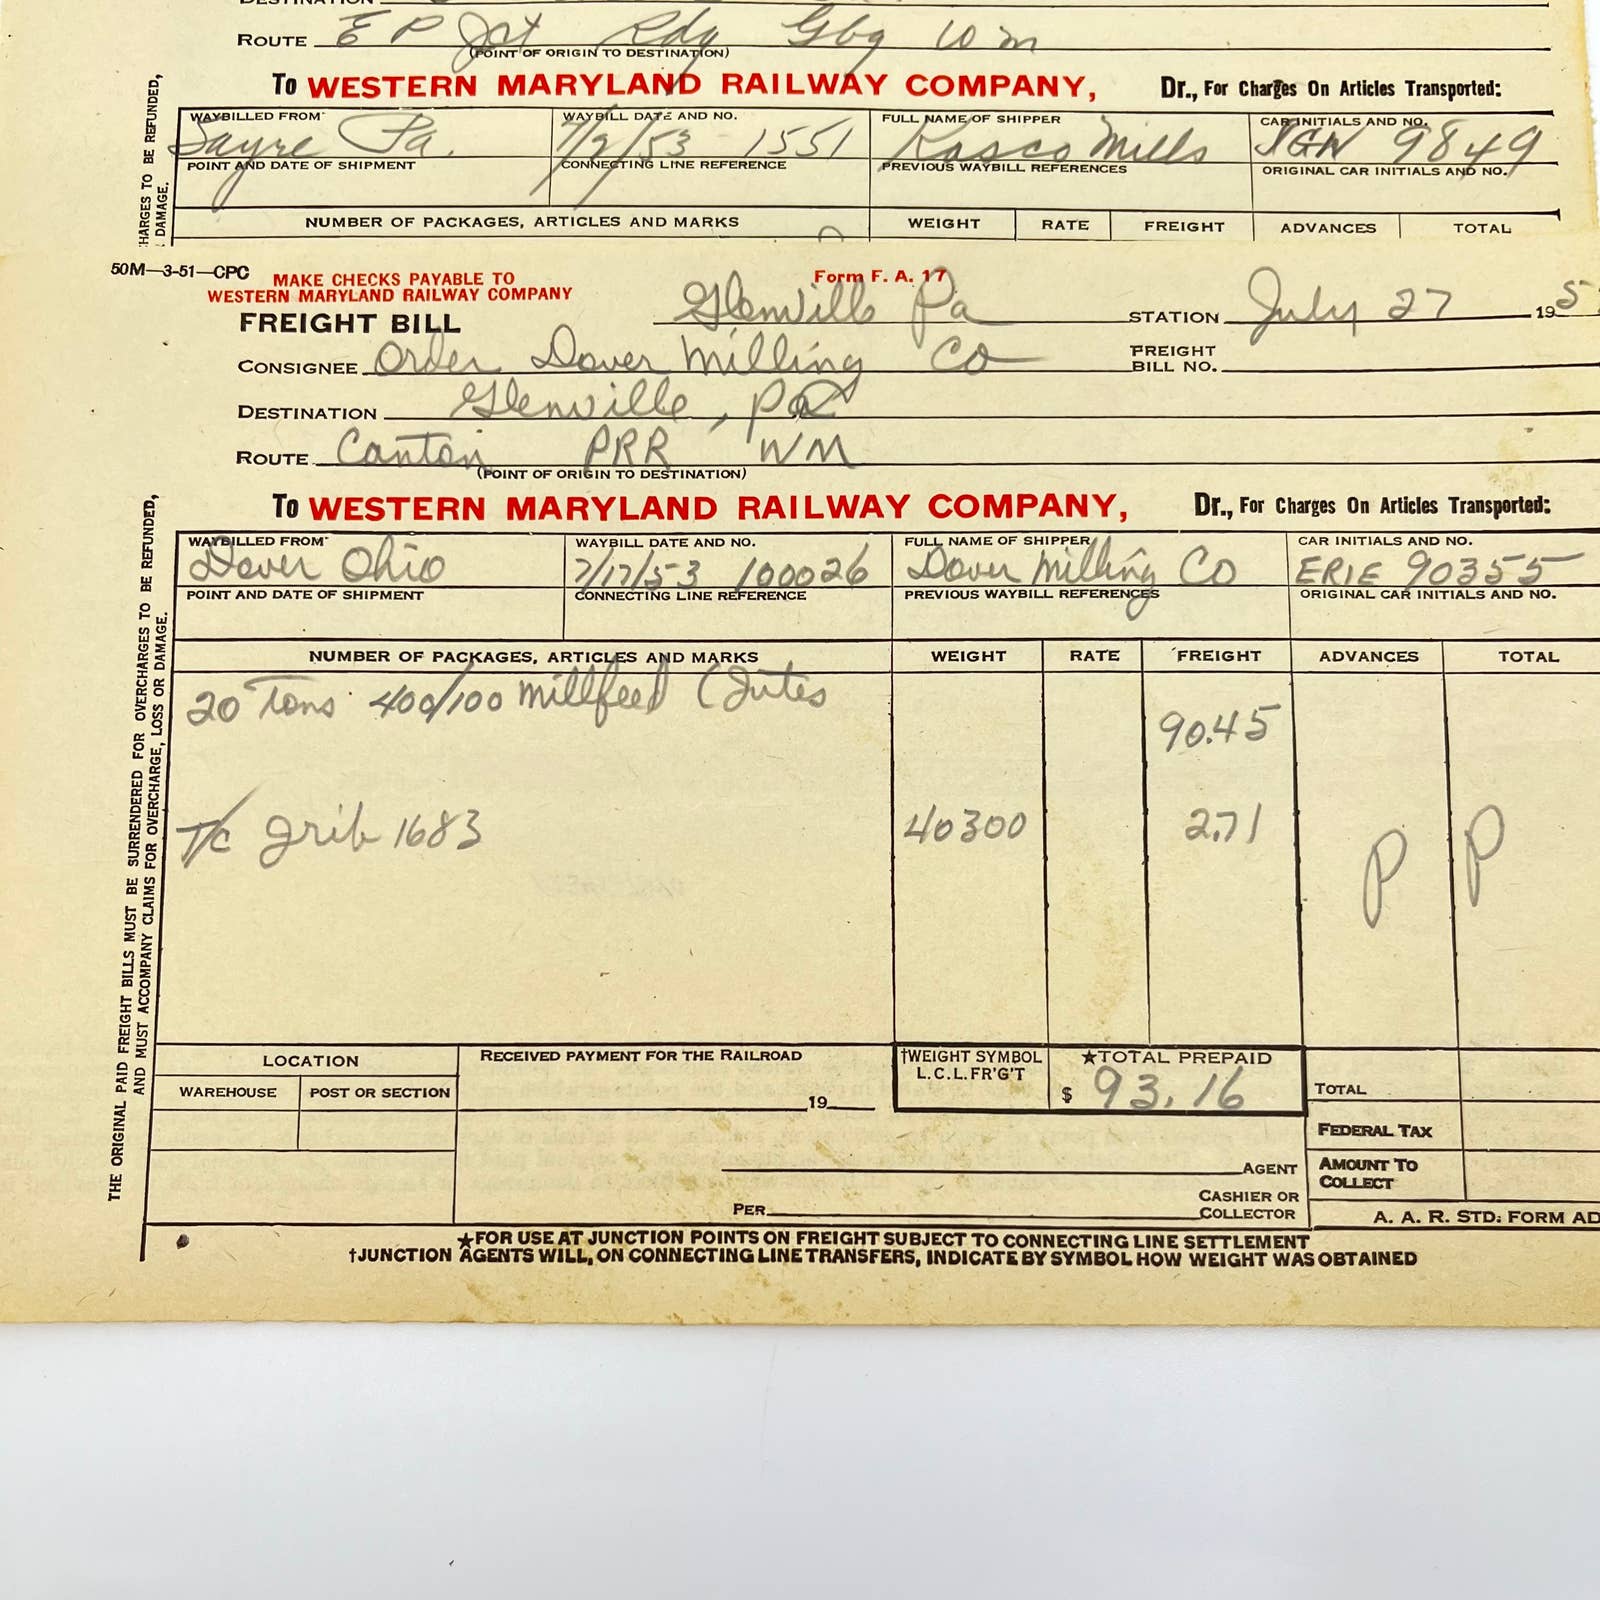 DESTINATION
ROUTE E P Jct Rdg Gbg WM
(POINT OF ORIGIN TO DESTINATION)
To WESTERN MARYLAND RAILWAY COMPANY, Dr., For Charges On Articles Transported:
WAYBILLED FROM WAYBILL DATE AND NO. FULL NAME OF SHIPPER CAR INITIALS AND NO.
Sayre Pa. 7/2/53 1551 Kasco Mills IGN 9849
POINT AND DATE OF SHIPMENT CONNECTING LINE REFERENCE PREVIOUS WAYBILL REFERENCES ORIGINAL CAR INITIALS AND NO.
NUMBER OF PACKAGES, ARTICLES AND MARKS WEIGHT RATE FREIGHT ADVANCES TOTAL
CHARGES TO BE REFUNDED,
DAMAGE.
50M—3-51—CPC MAKE CHECKS PAYABLE TO Form F. A. 17
WESTERN MARYLAND RAILWAY COMPANY
FREIGHT BILL Glenville Pa STATION July 27 195
CONSIGNEE Order Dover Milling Co FREIGHT BILL NO.
DESTINATION Glenville, Pa
ROUTE Canton PRR WM
(POINT OF ORIGIN TO DESTINATION)
To WESTERN MARYLAND RAILWAY COMPANY, Dr., For Charges On Articles Transported:
WAYBILLED FROM WAYBILL DATE AND NO. FULL NAME OF SHIPPER CAR INITIALS AND NO.
Dover Ohio 7/17/53 100026 Dover Milling Co ERIE 90355
POINT AND DATE OF SHIPMENT CONNECTING LINE REFERENCE PREVIOUS WAYBILL REFERENCES ORIGINAL CAR INITIALS AND NO.
NUMBER OF PACKAGES, ARTICLES AND MARKS WEIGHT RATE FREIGHT ADVANCES TOTAL
20 Tons 400/100 Millfeed (Jutes
90.45
T/C Trib 1683 40300 2.71 P P
THE ORIGINAL PAID FREIGHT BILLS MUST BE SURRENDERED FOR OVERCHARGES TO BE REFUNDED,
AND MUST ACCOMPANY CLAIMS FOR OVERCHARGE, LOSS OR DAMAGE.
LOCATION RECEIVED PAYMENT FOR THE RAILROAD †WEIGHT SYMBOL ★TOTAL PREPAID
L.C.L. FR'G'T
WAREHOUSE POST OR SECTION $ 93.16 TOTAL
19
FEDERAL TAX
AGENT AMOUNT TO COLLECT
PER CASHIER OR COLLECTOR
A. A. R. STD. FORM AD
★FOR USE AT JUNCTION POINTS ON FREIGHT SUBJECT TO CONNECTING LINE SETTLEMENT
†JUNCTION AGENTS WILL, ON CONNECTING LINE TRANSFERS, INDICATE BY SYMBOL HOW WEIGHT WAS OBTAINED